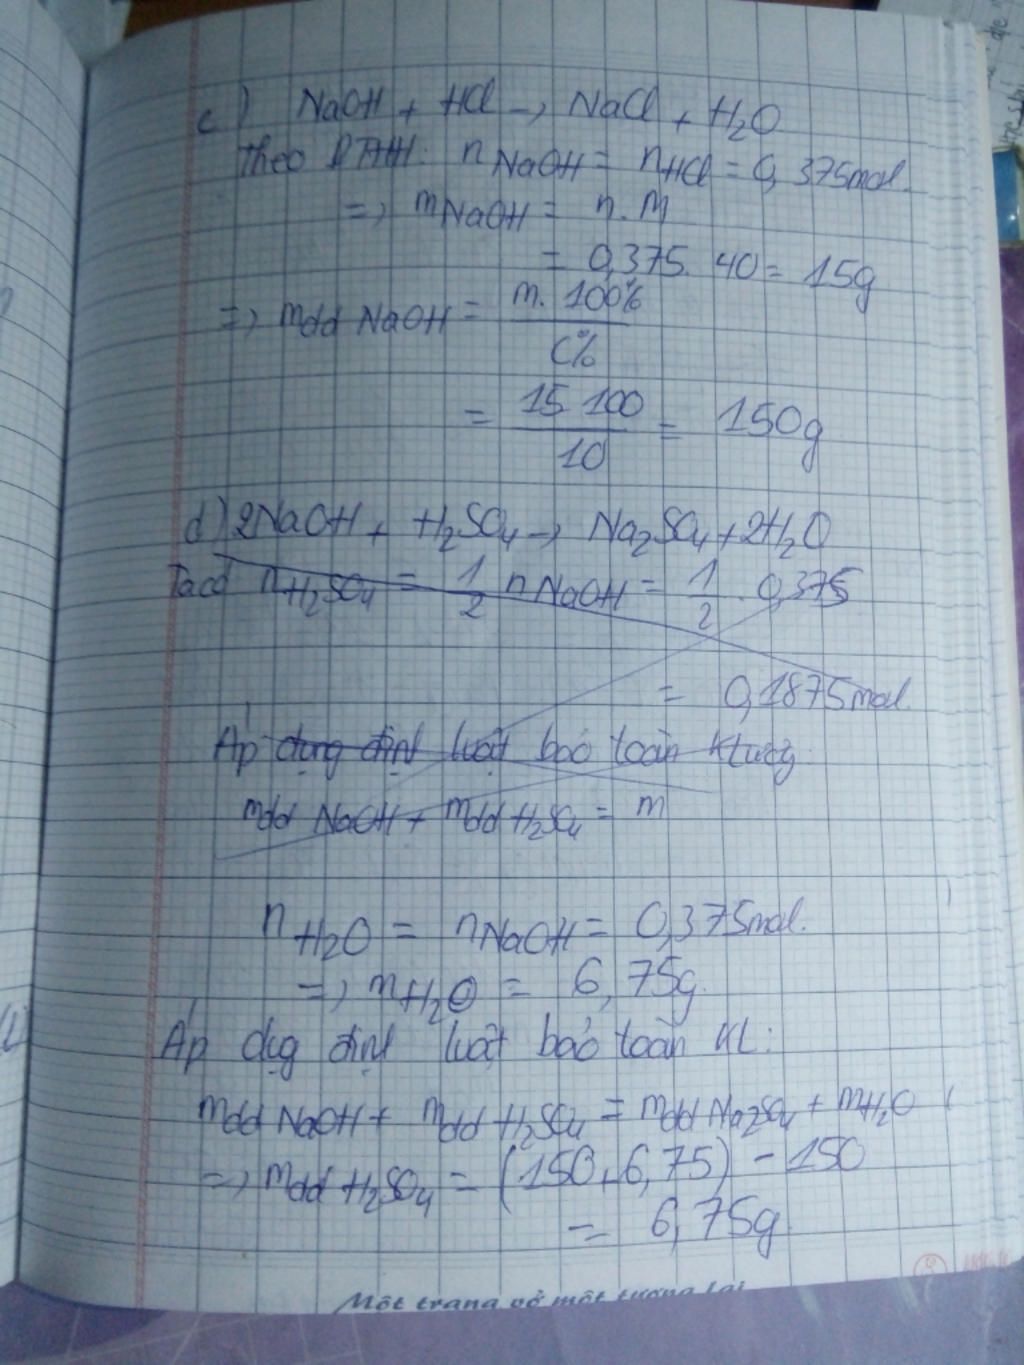 c) NaOH + HCl → NaCl + H2O
Theo PTHH: nNaOH = nHCl = 0,375mol.
=> mNaOH = n.M
= 0,375. 40 = 15g
=> mdd NaOH = m. 100% / C%
= 15 100 / 10 = 150g
d) 2NaOH + H2SO4 → Na2SO4 + 2H2O
Ta có nH2SO4 = 1/2 nNaOH = 1/2 . 0,375
= 0,1875mol.
Áp dụng định luật bảo toàn Klượg:
mdd NaOH + mdd H2SO4 = m
nH2O = nNaOH = 0,375mol.
=> mH2O = 6,75g.
Áp dụg định luật bảo toàn KL:
mdd NaOH + mdd H2SO4 = mdd Na2SO4 + mH2O
=> mdd H2SO4 = (150+6,75) - 150
= 6,75g.
Một trang vở một tương lai